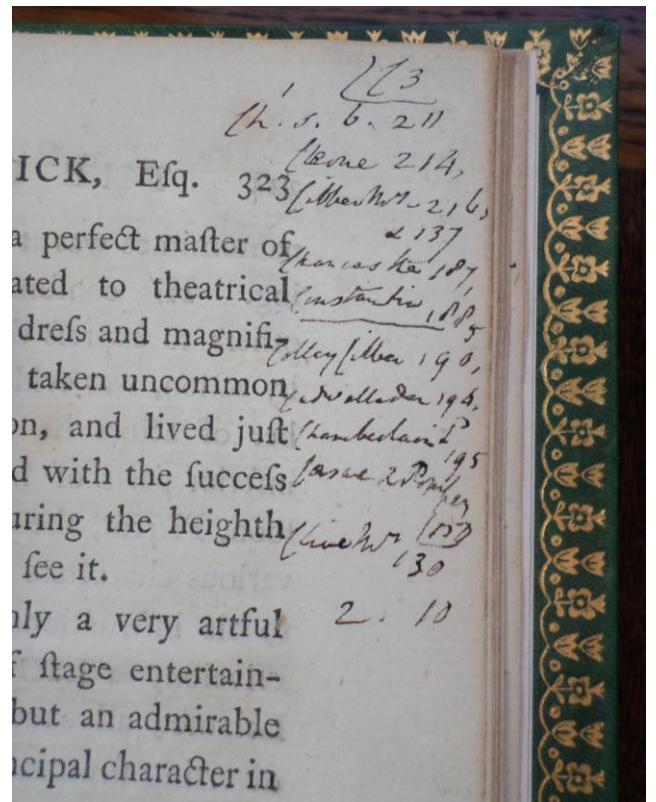 ICK, Eſq. 323
a perfect maſter of
ated to theatrical
dreſs and magnifi-
taken uncommon
on, and lived juſt
d with the ſucceſs
uring the heighth
ſee it.
nly a very artful
f ſtage entertain-
but an admirable
ncipal character in
Ch. s. 6. 211
Cleone 214,
Cibber Mrs - 216,
& 137
187,
Constantine, 188
Colley Cibber 190,
196,
Chamberlain
195
Cæsar & Pompey
Clive Mrs
130
2. 10